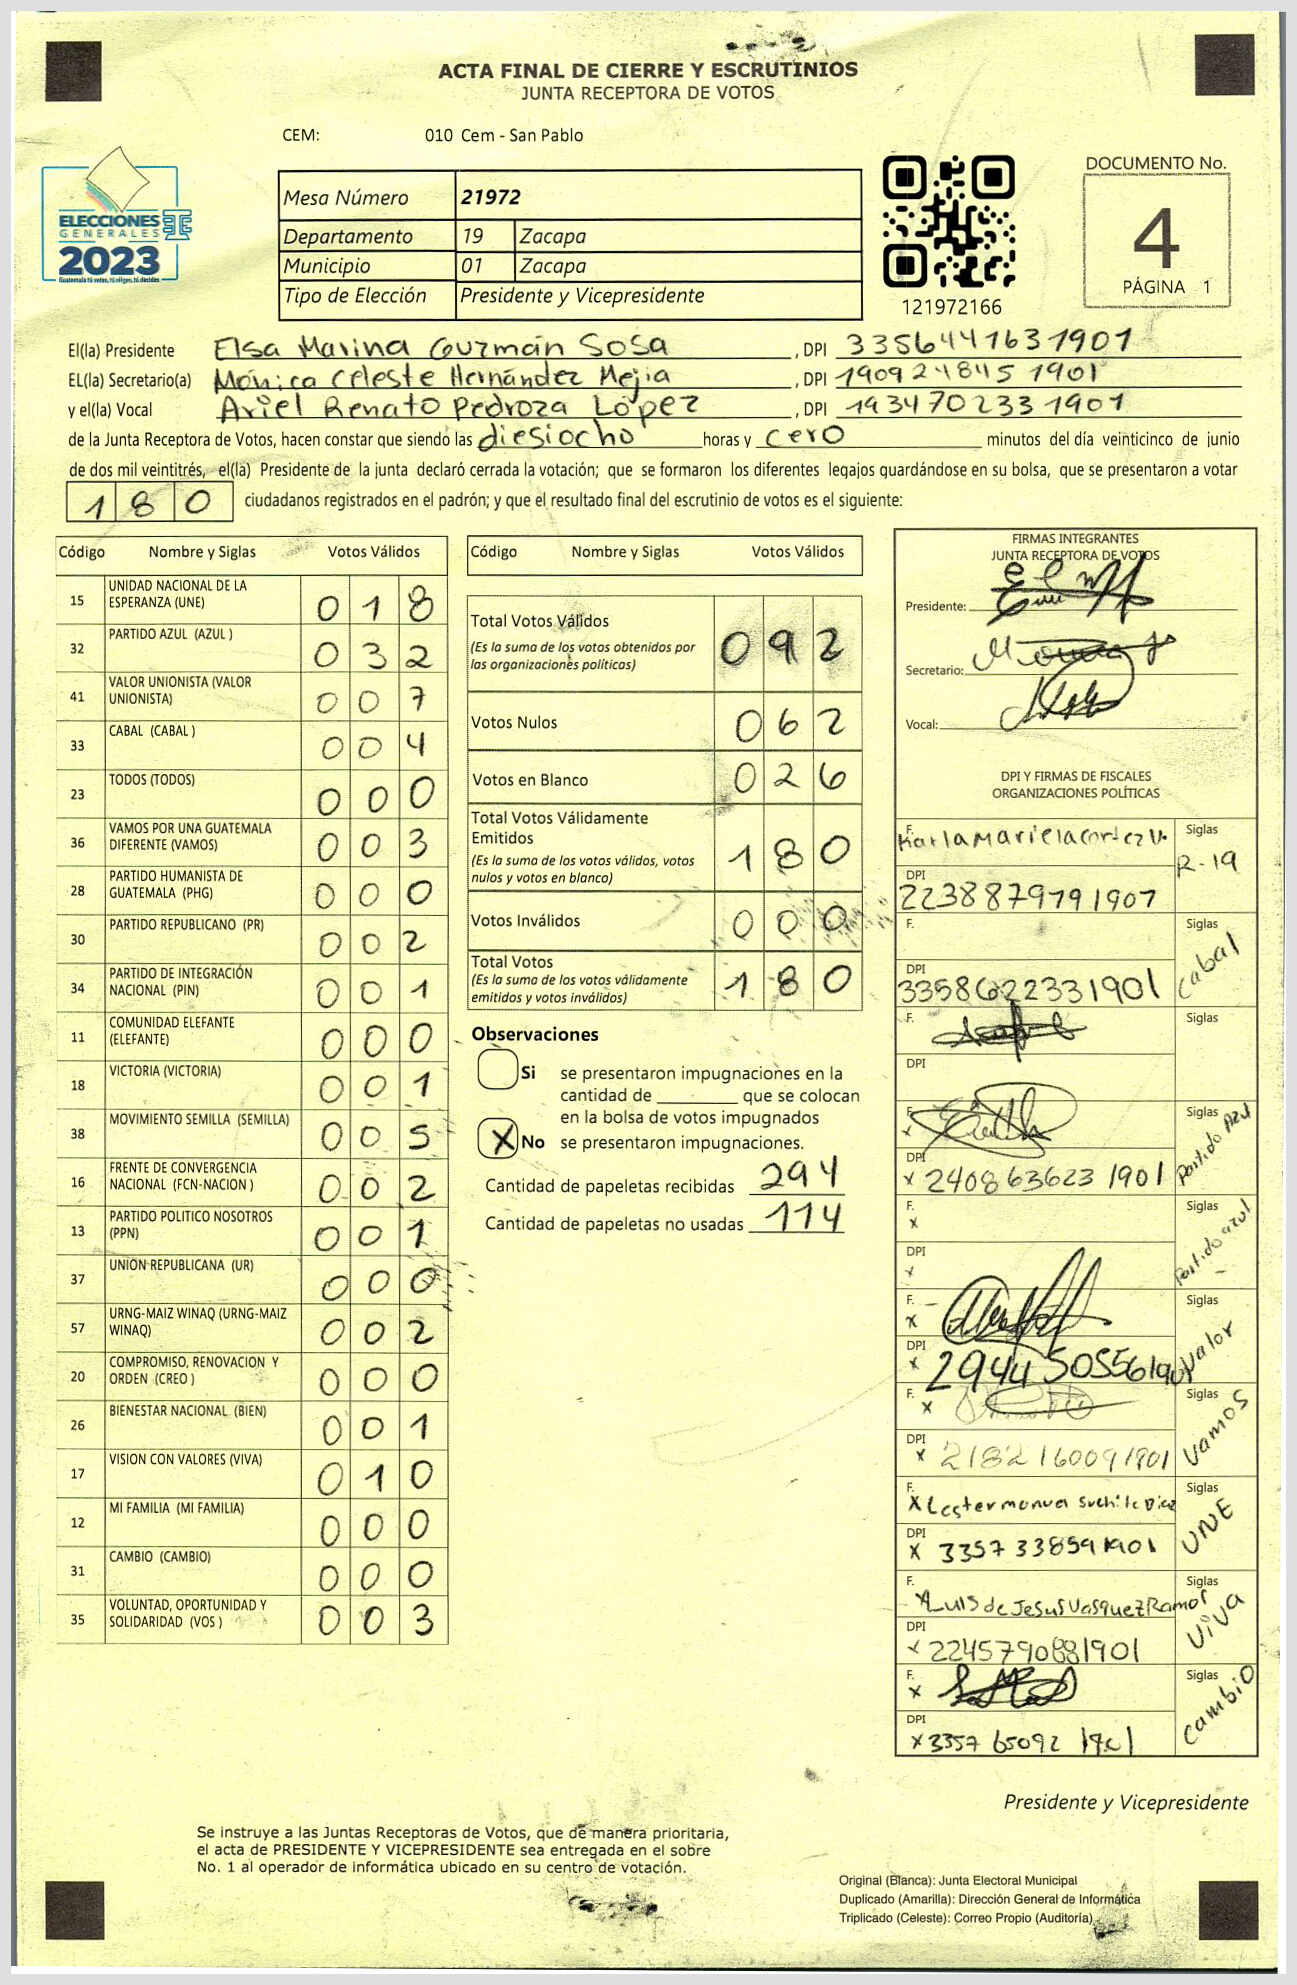 ACTA FINAL DE CIERRE Y ESCRUTINIOS
JUNTA RECEPTORA DE VOTOS
CEM: 010 Cem - San Pablo
ELECCIONES
GENERALES
2023
Guatemala tú votas, tú eliges, tú decides
Mesa Número 21972
Departamento 19 Zacapa
Municipio 01 Zacapa
Tipo de Elección Presidente y Vicepresidente
121972166
DOCUMENTO No.
4
PÁGINA 1
El(la) Presidente Elsa Marina Guzmán Sosa , DPI 3356441631901
EL(la) Secretario(a) Mónica Celeste Hernández Mejia , DPI 1909248451901
y el(la) Vocal Ariel Renato Pedroza López , DPI 1934702331901
de la Junta Receptora de Votos, hacen constar que siendo las diesiocho horas y cero minutos del día veinticinco de junio
de dos mil veintitrés, el(la) Presidente de la junta declaró cerrada la votación; que se formaron los diferentes legajos guardándose en su bolsa, que se presentaron a votar
180 ciudadanos registrados en el padrón; y que el resultado final del escrutinio de votos es el siguiente:
Código Nombre y Siglas Votos Válidos
15 UNIDAD NACIONAL DE LA ESPERANZA (UNE) 018
32 PARTIDO AZUL (AZUL ) 032
41 VALOR UNIONISTA (VALOR UNIONISTA) 007
33 CABAL (CABAL ) 004
23 TODOS (TODOS) 000
36 VAMOS POR UNA GUATEMALA DIFERENTE (VAMOS) 003
28 PARTIDO HUMANISTA DE GUATEMALA (PHG) 000
30 PARTIDO REPUBLICANO (PR) 002
34 PARTIDO DE INTEGRACIÓN NACIONAL (PIN) 001
11 COMUNIDAD ELEFANTE (ELEFANTE) 000
18 VICTORIA (VICTORIA) 001
38 MOVIMIENTO SEMILLA (SEMILLA) 005
16 FRENTE DE CONVERGENCIA NACIONAL (FCN-NACION ) 002
13 PARTIDO POLITICO NOSOTROS (PPN) 001
37 UNION REPUBLICANA (UR) 000
57 URNG-MAIZ WINAQ (URNG-MAIZ WINAQ) 002
20 COMPROMISO, RENOVACION Y ORDEN (CREO ) 000
26 BIENESTAR NACIONAL (BIEN) 001
17 VISION CON VALORES (VIVA) 010
12 MI FAMILIA (MI FAMILIA) 000
31 CAMBIO (CAMBIO) 000
35 VOLUNTAD, OPORTUNIDAD Y SOLIDARIDAD (VOS ) 003
Código Nombre y Siglas Votos Válidos
Total Votos Válidos 092
(Es la suma de los votos obtenidos por las organizaciones políticas)
Votos Nulos 062
Votos en Blanco 026
Total Votos Válidamente Emitidos 180
(Es la suma de los votos válidos, votos nulos y votos en blanco)
Votos Inválidos 000
Total Votos 180
(Es la suma de los votos válidamente emitidos y votos inválidos)
Observaciones
Si se presentaron impugnaciones en la
cantidad de ________ que se colocan
en la bolsa de votos impugnados
X No se presentaron impugnaciones.
Cantidad de papeletas recibidas 294
Cantidad de papeletas no usadas 114
FIRMAS INTEGRANTES
JUNTA RECEPTORA DE VOTOS
Presidente:
Secretario:
Vocal:
DPI Y FIRMAS DE FISCALES
ORGANIZACIONES POLÍTICAS
F. Karla Mariela Cortez V. Siglas R-19
DPI 2238879791907
F. Siglas Cabal
DPI 3358622331901
F. Siglas
DPI
F. x Siglas Partido Azul
DPI x 2408636231901
F. x Siglas Partido azul
DPI x
F. x Siglas Valor
DPI x 2944505561901
F. x Siglas Vamos
DPI x 2182160091901
F. x Lester manuel Suchite Diaz Siglas UNE
DPI x 3357338591901
F. x Luis de Jesus Vasquez Ramos Siglas VIVA
DPI x 2245790881901
F. x Siglas Cambio
DPI x 3357650921901
Presidente y Vicepresidente
Se instruye a las Juntas Receptoras de Votos, que de manera prioritaria,
el acta de PRESIDENTE Y VICEPRESIDENTE sea entregada en el sobre
No. 1 al operador de informática ubicado en su centro de votación.
Original (Blanca): Junta Electoral Municipal
Duplicado (Amarilla): Dirección General de Informática
Triplicado (Celeste): Correo Propio (Auditoría)